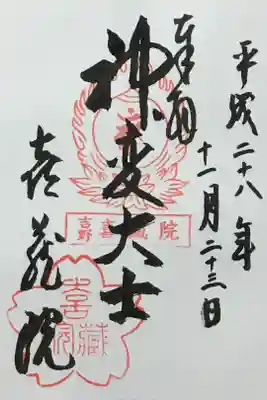 平成二十八年
十一月二十三日
奉拝
神変大士
喜蔵院
喜蔵院